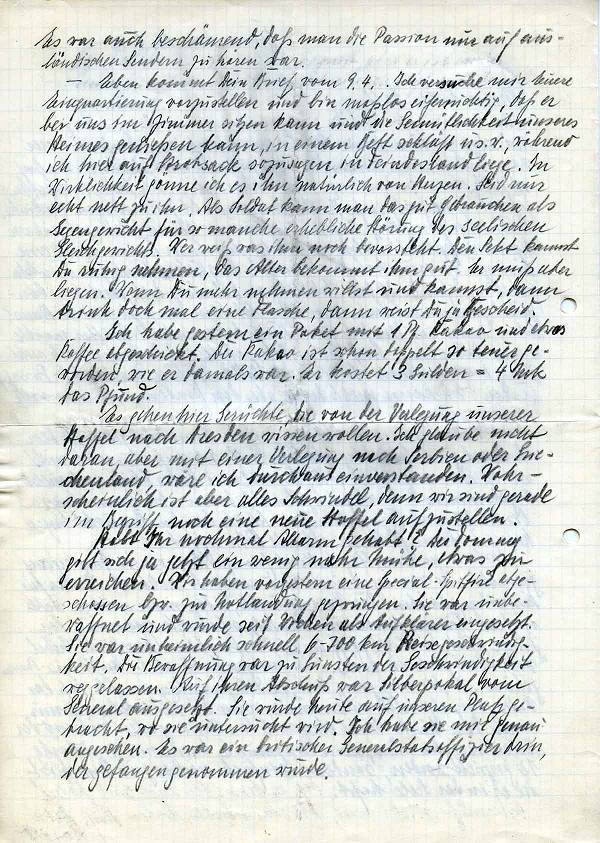 Es war auch beschämend, daß man die Passion nur auf aus-
ländischen Sendern zu hören war.
— Eben kommt Dein Brief vom 9.4. . Ich versuche mir Eure
Einquartierung vorzustellen und bin maßlos eifersüchtig, daß er
bei uns im Zimmer sitzen kann und die Gemütlichkeit unseres
Heimes genießen kann, in einem Bett schläft u.s.w., während
ich hier auf Strohsack sozusagen in Feindesland liege. In
Wirklichkeit gönne ich es ihm natürlich von Herzen. Seid nur
echt nett zu ihm. Als Soldat kann man das gut gebrauchen als
Gegengewicht für so manche erhebliche Störung des seelischen
Gleichgewichts. Wer weiß was ihm noch bevorsteht. Den Sekt kannst
Du ruhig nehmen, das Alter bekommt ihm gut. Er muß aber
liegen. Wenn Du mehr nehmen willst und kannst, dann
trink doch mal eine Flasche, dann weist Du ja Bescheid.
Ich habe gestern ein Paket mit 1 Pf. Kakao und etwas
Kaffee abgeschickt. Der Kakao ist schon doppelt so teuer ge-
worden, wie er damals war. Er kostet 3 Gulden = 4 Mk
das Pfund.
Es gehen hier Gerüchte, die von der Verlegung unserer
Staffel nach Dresden wissen wollen. Ich glaube nicht
daran, aber mit einer Verlegung nach Serbien oder Grie-
chenland, wäre ich durchaus einverstanden. Wahr-
scheinlich ist aber alles Schwindel, denn wir sind gerade
im Begriff noch eine neue Staffel aufzustellen.
Habt Ihr nochmal Alarm gehabt? Der Tommy
gibt sich ja jetzt ein wenig mehr Mühe, etwas zu
erreichen. Wir haben vorgestern eine Special-Spitfire abge-
schossen bzw. zur Notlandung gezwungen. Sie war unbe-
waffnet und wurde seit Wochen als Aufklärer eingesetzt.
Sie war unheimlich schnell, 6-700 km Reisegeschwindig-
keit. Die Bewaffnung war zu Gunsten der Geschwindigkeit
weggelassen. Auf ihren Abschuß war Silberpokal vom
General ausgesetzt. Sie wurde heute auf unseren Platz ge-
bracht, wo sie untersucht wird. Ich habe sie mir genau
angesehen. Es war ein britischer Generalstabsoffizier drin,
der gefangen genommen wurde